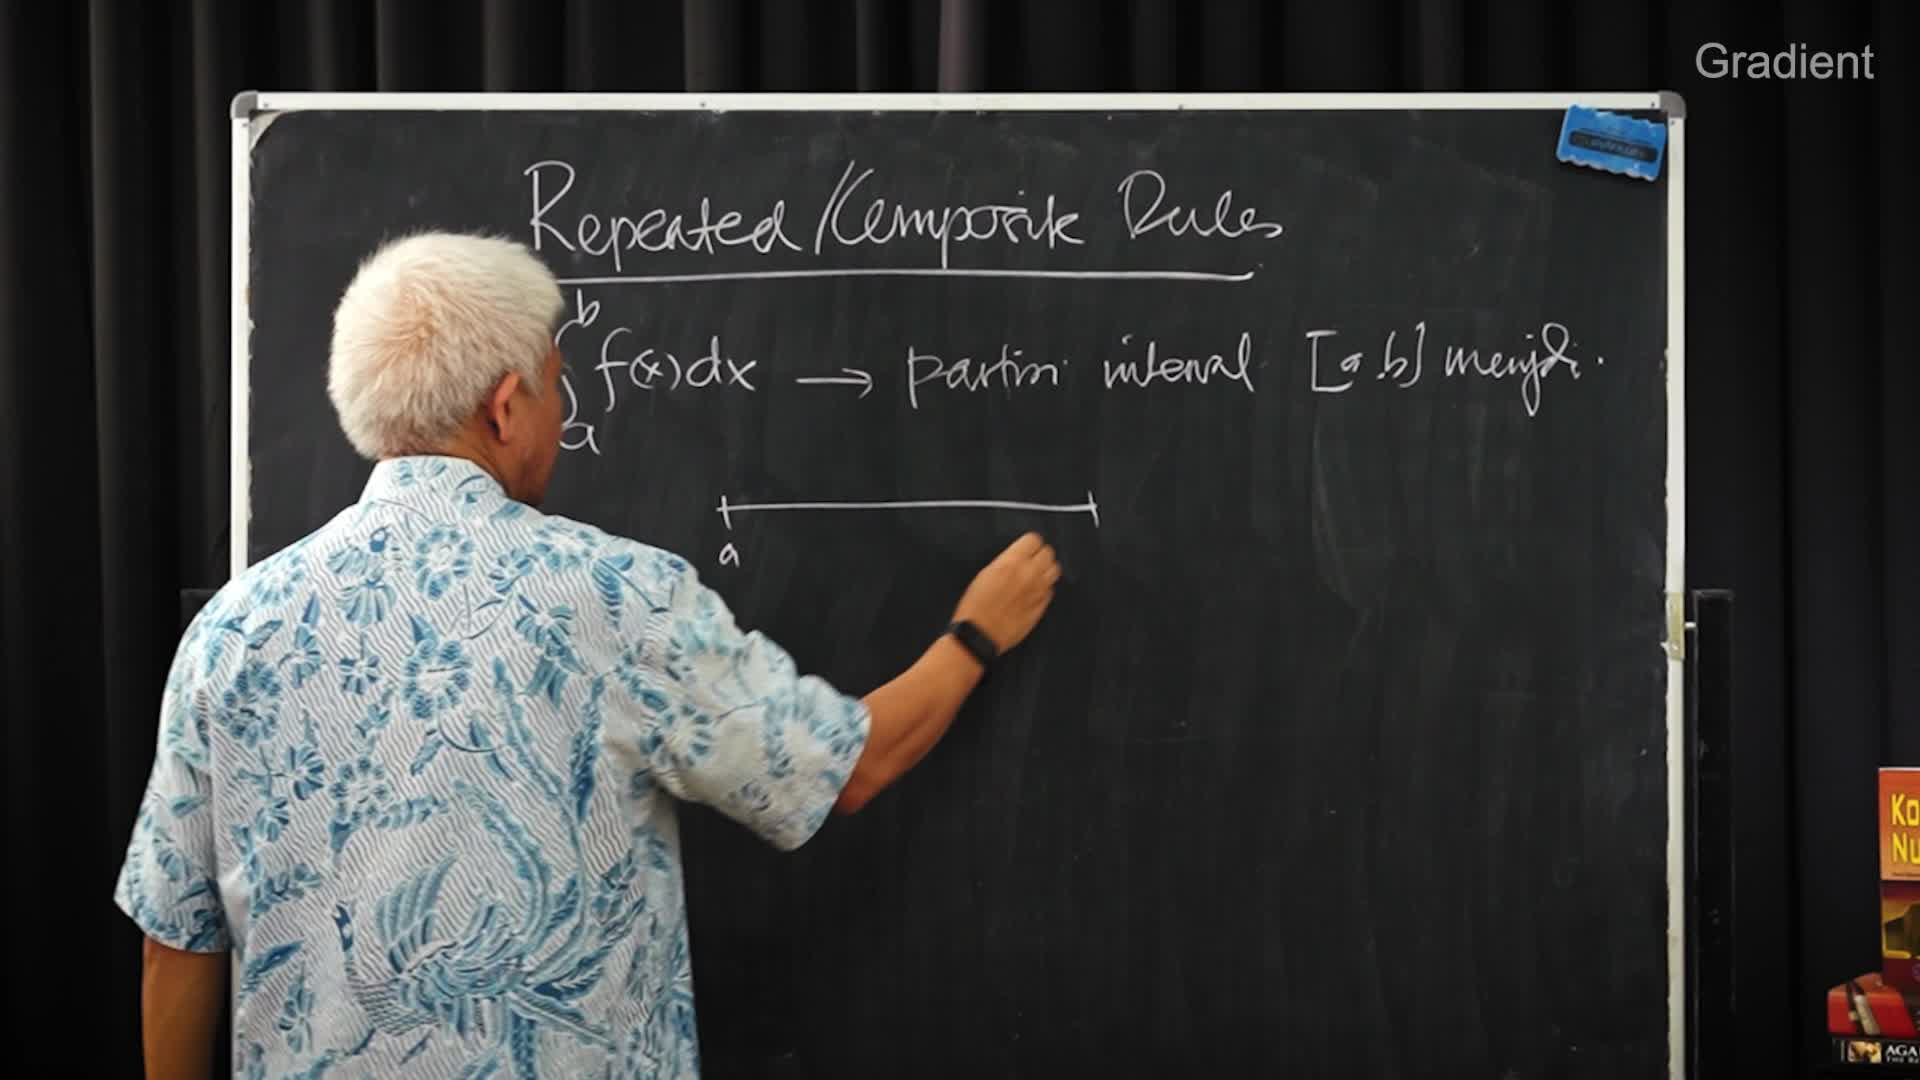 Gradient
Repeated/Komposit Rules
b
∫ f(x)dx → partisi interval [a,b] menjadi
a
a
Ko
Nu
AGA